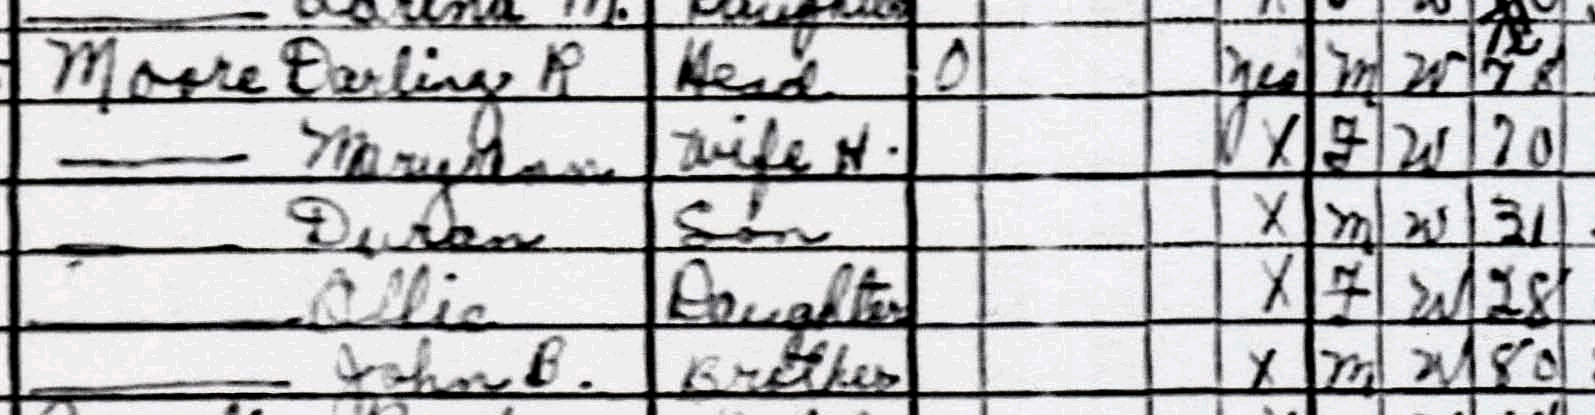 M. Daughter
Moore Darling R Head 0 Yes M W 78
Mary Ann Wife H. X F W 70
Duran Son X M W 31
Ollie Daughter X F W 28
John B. Brother X M W 80